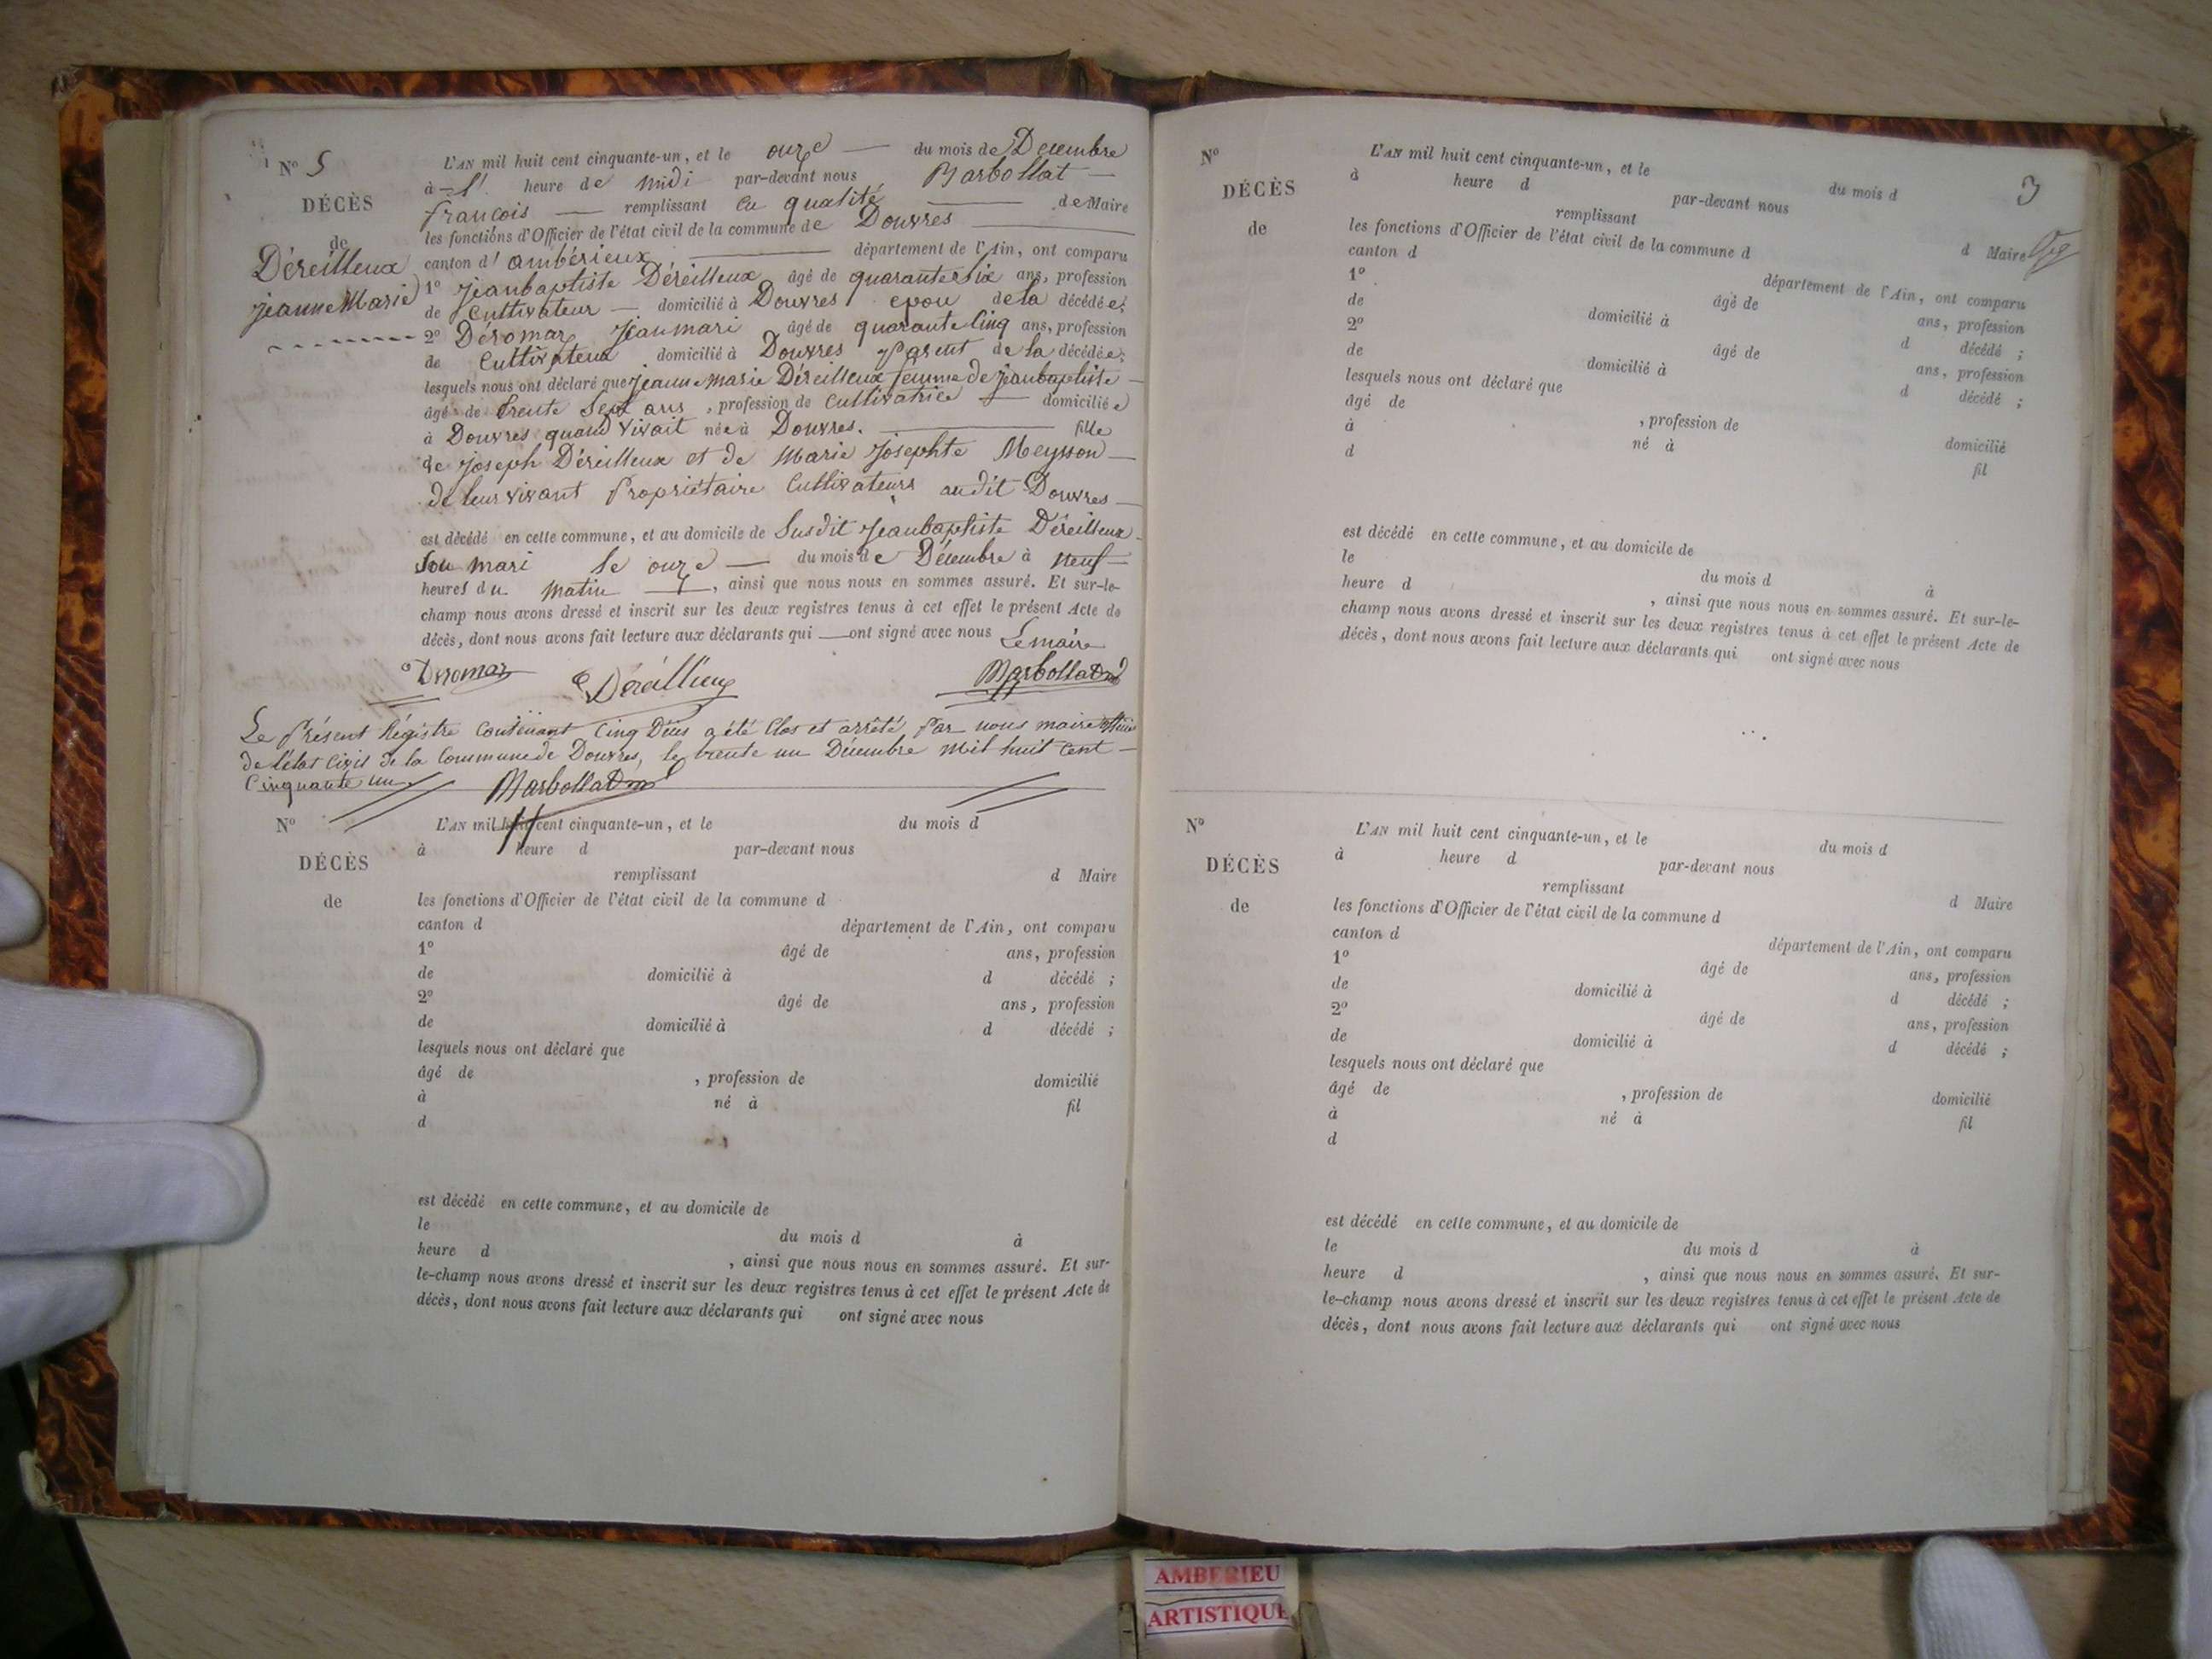 N° 5
DÉCÈS
de
Déreilleux
jeanne Marie
L'AN mil huit cent cinquante-un, et le onze — du mois de Decembre
à — l' heure de midi par-devant nous Marbollat —
françois — remplissant en qualité — de Maire
les fonctions d'Officier de l'état civil de la commune de Douvres —
canton d' ambérieux — département de l'Ain, ont comparu
1° Jeanbaptiste Déreilleux âgé de quarante Six ans, profession
de Cultivateur — domicilié à Douvres epou de la décédée;
2° Déromas Jeanmari âgé de quarante Cinq ans, profession
de Cultivateur domicilié à Douvres parent de la décédée;
lesquels nous ont déclaré que jeanne marie Déreilleux femme de jeanbaptiste —
âgé de trente Sept ans, profession de Cultivatrice — domicilié e
à Douvres quand vivait née à Douvres. — fille
de joseph Déreilleux et de Marie josephte Meysson —
de leur vivant Propriétaire Cultivateurs audit Douvres —
est décédé en cette commune, et au domicile de Susdit Jeanbaptiste Déreilleux
Son mari le onze — du mois de Décembre à neuf —
heures du matin —, ainsi que nous nous en sommes assuré. Et sur-le-
champ nous avons dressé et inscrit sur les deux registres tenus à cet effet le présent Acte de
décès, dont nous avons fait lecture aux déclarants qui — ont signé avec nous Le maire
Deromas Déreilleux Marbollat
Le Présent Régistre Contenant Cinq Décès a été Clos et arrêté Par nous maire officier
de l'état Civil de la Commune de Douvres, le trente un Décembre mil huit Cent —
Cinquante un
Marbollat
N°
DÉCÈS
de
L'AN mil huit cent cinquante-un, et le du mois d
à heure d par-devant nous
remplissant d Maire
les fonctions d'Officier de l'état civil de la commune d
canton d département de l'Ain, ont comparu
1° âgé de ans, profession
de domicilié à d décédé ;
2° âgé de ans, profession
de domicilié à d décédé ;
lesquels nous ont déclaré que
âgé de , profession de domicilié
à né à fil
d
est décédé en cette commune, et au domicile de
le du mois d à
heure d , ainsi que nous nous en sommes assuré. Et sur-
le-champ nous avons dressé et inscrit sur les deux registres tenus à cet effet le présent Acte de
décès, dont nous avons fait lecture aux déclarants qui ont signé avec nous
3
N°
DÉCÈS
de
L'AN mil huit cent cinquante-un, et le du mois d
à heure d par-devant nous
remplissant d Maire
les fonctions d'Officier de l'état civil de la commune d
canton d département de l'Ain, ont comparu
1° âgé de ans, profession
de domicilié à d décédé ;
2° âgé de ans, profession
de domicilié à d décédé ;
lesquels nous ont déclaré que
âgé de , profession de domicilié
à né à fil
d
est décédé en cette commune, et au domicile de
le du mois d à
heure d , ainsi que nous nous en sommes assuré. Et sur-le-
champ nous avons dressé et inscrit sur les deux registres tenus à cet effet le présent Acte de
décès, dont nous avons fait lecture aux déclarants qui ont signé avec nous
N°
DÉCÈS
de
L'AN mil huit cent cinquante-un, et le du mois d
à heure d par-devant nous
remplissant d Maire
les fonctions d'Officier de l'état civil de la commune d
canton d département de l'Ain, ont comparu
1° âgé de ans, profession
de domicilié à d décédé ;
2° âgé de ans, profession
de domicilié à d décédé ;
lesquels nous ont déclaré que
âgé de , profession de domicilié
à né à fil
d
est décédé en cette commune, et au domicile de
le du mois d à
heure d , ainsi que nous nous en sommes assuré. Et sur-
le-champ nous avons dressé et inscrit sur les deux registres tenus à cet effet le présent Acte de
décès, dont nous avons fait lecture aux déclarants qui ont signé avec nous
AMBERIEU
ARTISTIQUE